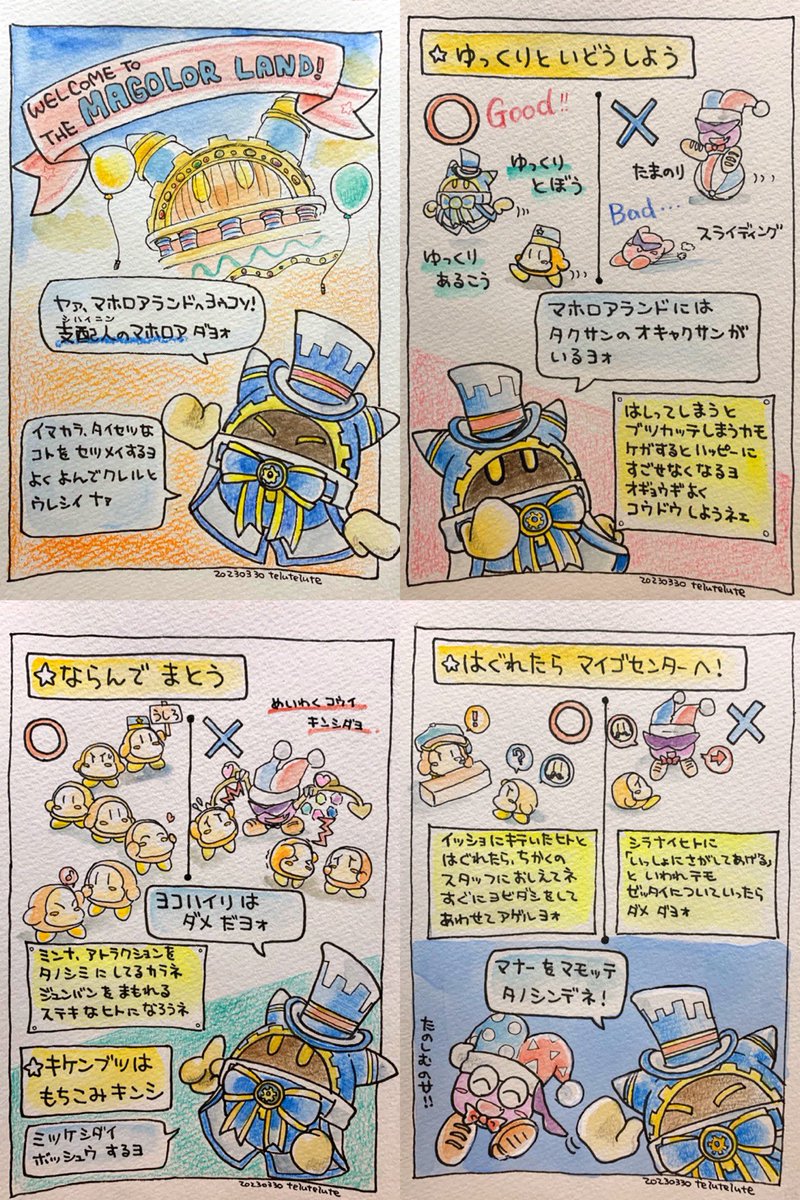 WELCOME TO
THE MAGOLOR LAND!
ヤァ、マホロアランドヘヨウコソ!
シハイニン
支配人のマホロア ダヨォ
イマカラ、タイセツな
コトを セツメイするヨ
よく よんでクレルと
ウレシイ ナァ
20230330 telutelute
☆ゆっくりと いどうしよう
Good!!
ゆっくり
とぼう
ゆっくり
あるこう
たまのり
Bad...
スライディング
マホロアランドには
タクサンの オキャクサンが
いるヨォ
はしってしまうと
ブツカッテしまうカモ
ケガすると ハッピーに
すごせなくなるヨ
オギョウギよく
コウドウ しようネェ
20230330 telutelute
☆ならんで まとう
うしろ
めいわくコウイ
キンシダヨ
ヨコハイリは
ダメ だヨォ
ミンナ、アトラクションを
タノシミにしてるカラネ
ジュンバンをまもれる
ステキなヒトになろうネ
☆キケンブツは
もちこみキンシ
ミツケシダイ
ボッシュウ するヨ
20230330 telutelute
☆はぐれたら マイゴセンターへ!
!
?
イッショにキテいたヒトと
はぐれたら、ちかくの
スタッフにおしえてネ
すぐにヨビダシをして
あわせてアゲルヨォ
シラナイヒトに
「いっしょにさがしてあげる」
と いわれテモ
ゼッタイについていったら
ダメ ダヨォ
マナーをマモッテ
タノシンデネ!
たのしむのサ!!
20230330 telutelute